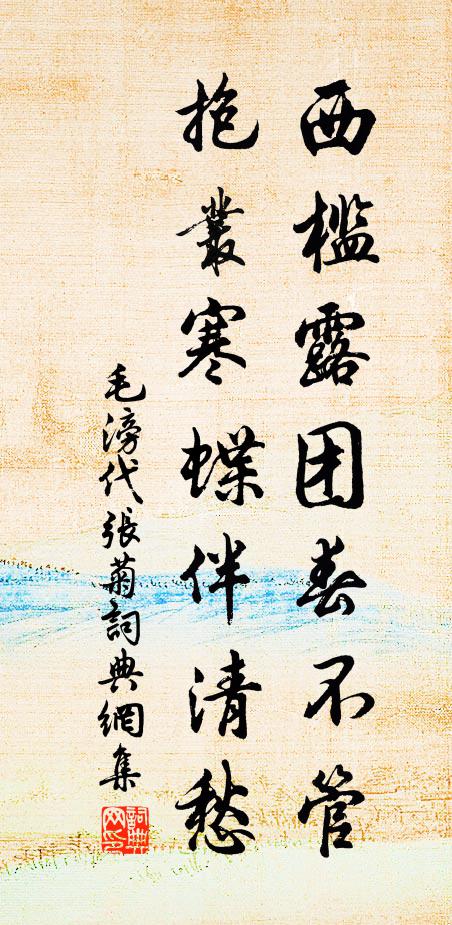 西槛露团春不管
抱丛寒蝶伴清愁
毛滂代張菊詞典網集
詞典网印